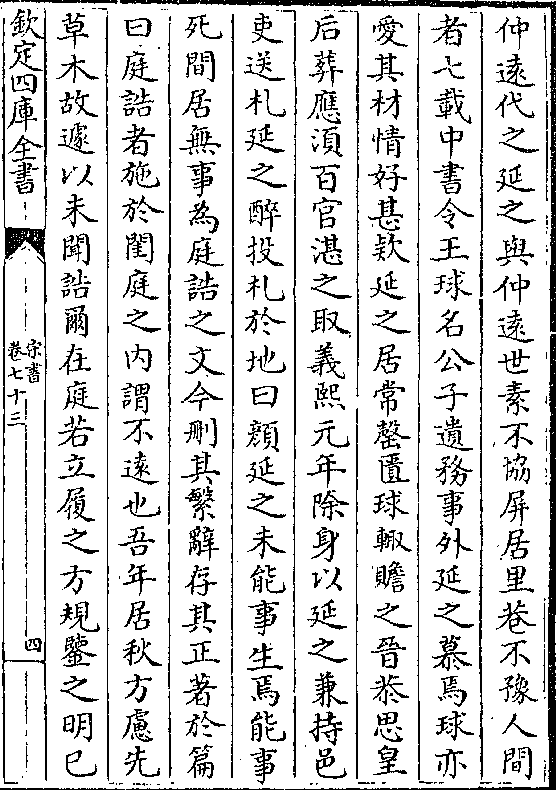 仲遠代之延之與仲遠世素不協屏居里巷不豫人間
者七載中書令王球名公子遺務事外延之慕焉球亦
愛其材情好甚欵延之居常罄匱球輙贍之晉恭思皇
后葬應湏百官湛之取義熙元年除身以延之兼持邑
吏送札延之醉投札於地曰顔延之未能事生焉能事
死間居無事為庭誥之文今刪其繁辭存其正著於篇
曰庭誥者施於閨庭之内謂不逺也吾年居秋方慮先
草木故遽以未聞誥爾在庭若立履之方規鑒之明已
欽定四庫全書
宋書
卷七十三
四